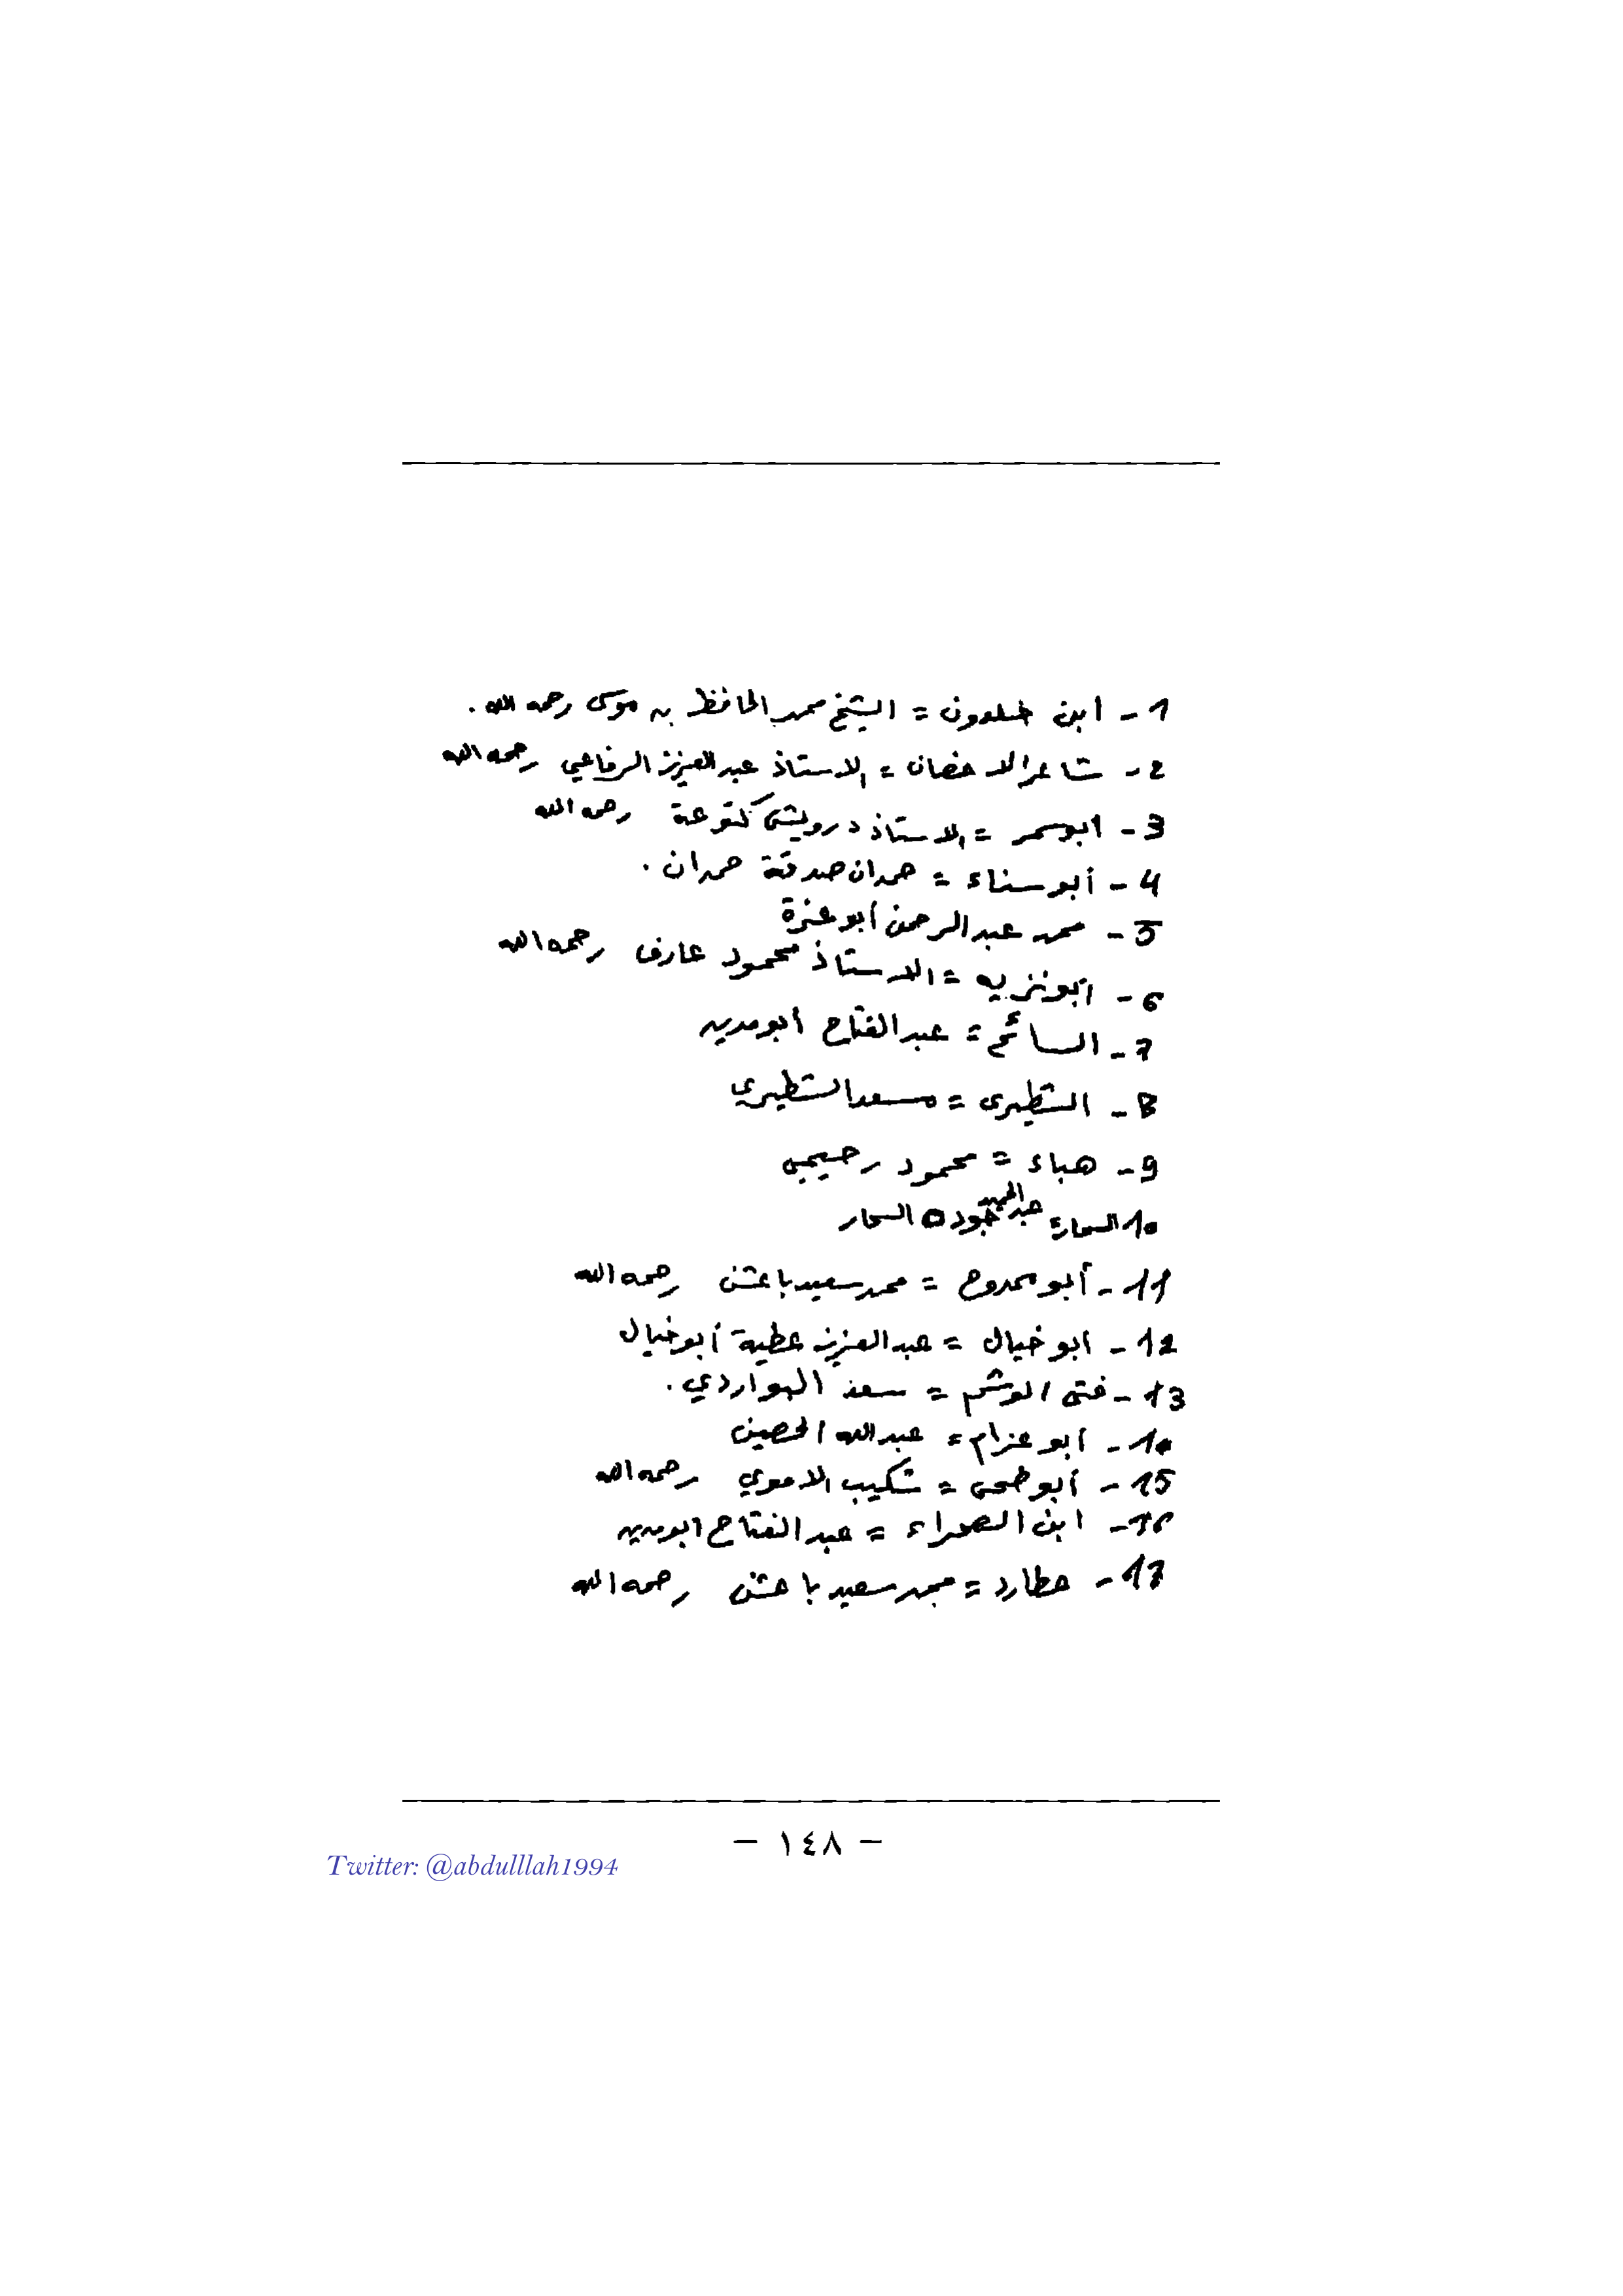 1- ابن خلدون = الشيخ محمد الحافظ بن موسى رحمه الله.
2- شاعر الاحضان = الاستاذ عبدالعزيز الرفاعي رحمه الله
3- ابو سمر = الاستاذ درويش كتوعة رحمه الله
4- أبو سناء = حمدان صدقة حمدان.
5- محمد عبدالرحمن أبو عنزة
6- ابو نزيه = الاستاذ محمود عارف رحمه الله
7- السائح = عبدالفتاح أبو مدين
8- الشطيرى = مسعد الشطيري
9- هباء = محمود رحيمي
10- السحار = عبدالحميد جوده السحار
11- أبو ممدوح = محمد سعيد باعشن رحمه الله
12- ابو خيال = عبدالعزيز عطية أبو خيال
13- فتى الوشم = سعد البواردي.
14- أبو عزام = عبدالله الحصين
15- أبو ضحى = شكيب الاموي رحمه الله
16- ابن الصحراء = عبدالفتاح ابو مدين
17- عطارد = محمد سعيد باعشن رحمه الله
- ١٤٨ -
Twitter: @abdulllah1994